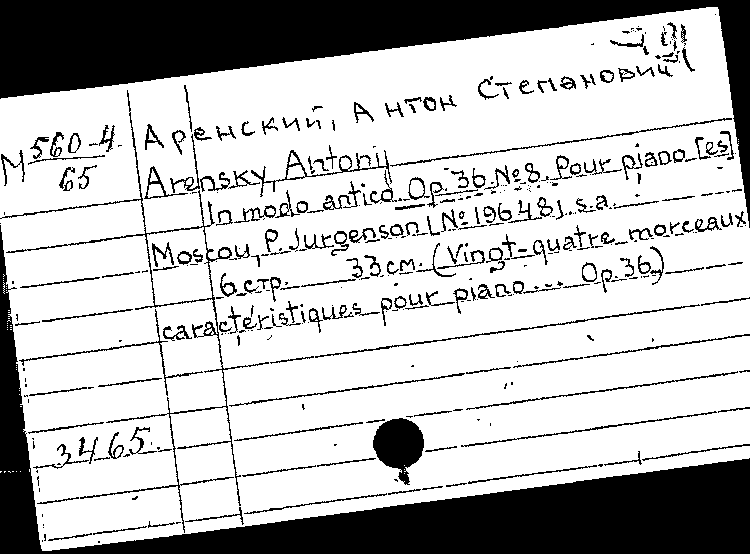 91
М 560-4
65
Аренский, Антон Степанович
Arensky, Antonij
In modo antico. Op. 36. № 8. Pour piano [es]
Moscou, P. Jurgenson (№ 19648). s.a.
6 стр. 33 см. (Vingt-quatre morceaux
caractéristiques pour piano... Op. 36.)
3465.